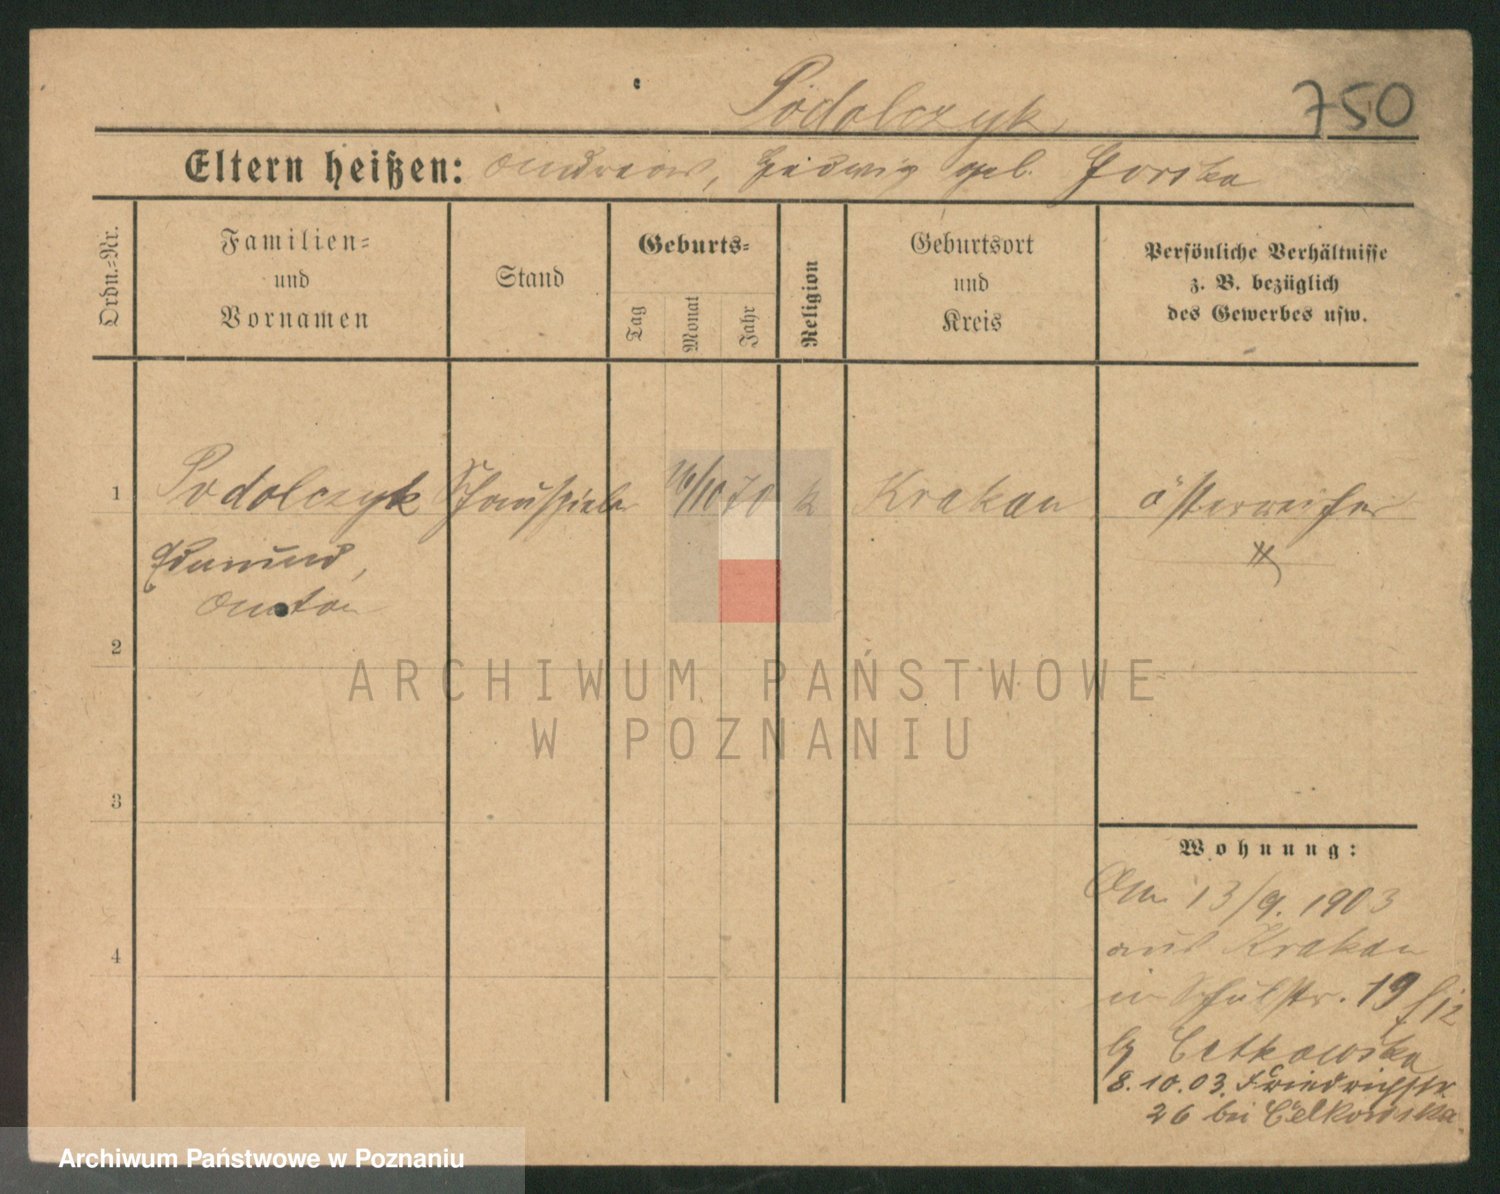 Podolczyk
750
Eltern heißen: Andreas, Hedwig geb. Gorska
Ordn.-Nr.
Familien-
und
Vornamen
Stand
Geburts-
Tag
Monat
Jahr
Religion
Geburtsort
und
Kreis
Persönliche Verhältnisse
z. B. bezüglich
des Gewerbes usw.
1 Podolczyk Schauspieler 16/10 70 k Krakau österreicher
Edmund,
Anton
2
ARCHIWUM PAŃSTWOWE
W POZNANIU
3
Wohnung:
Am 13/9. 1903
aus Krakau
4
in Schulstr. 19
Celkowska
8.10.03. Friedrichstr.
26 bei Celkowska.
Archiwum Państwowe w Poznaniu